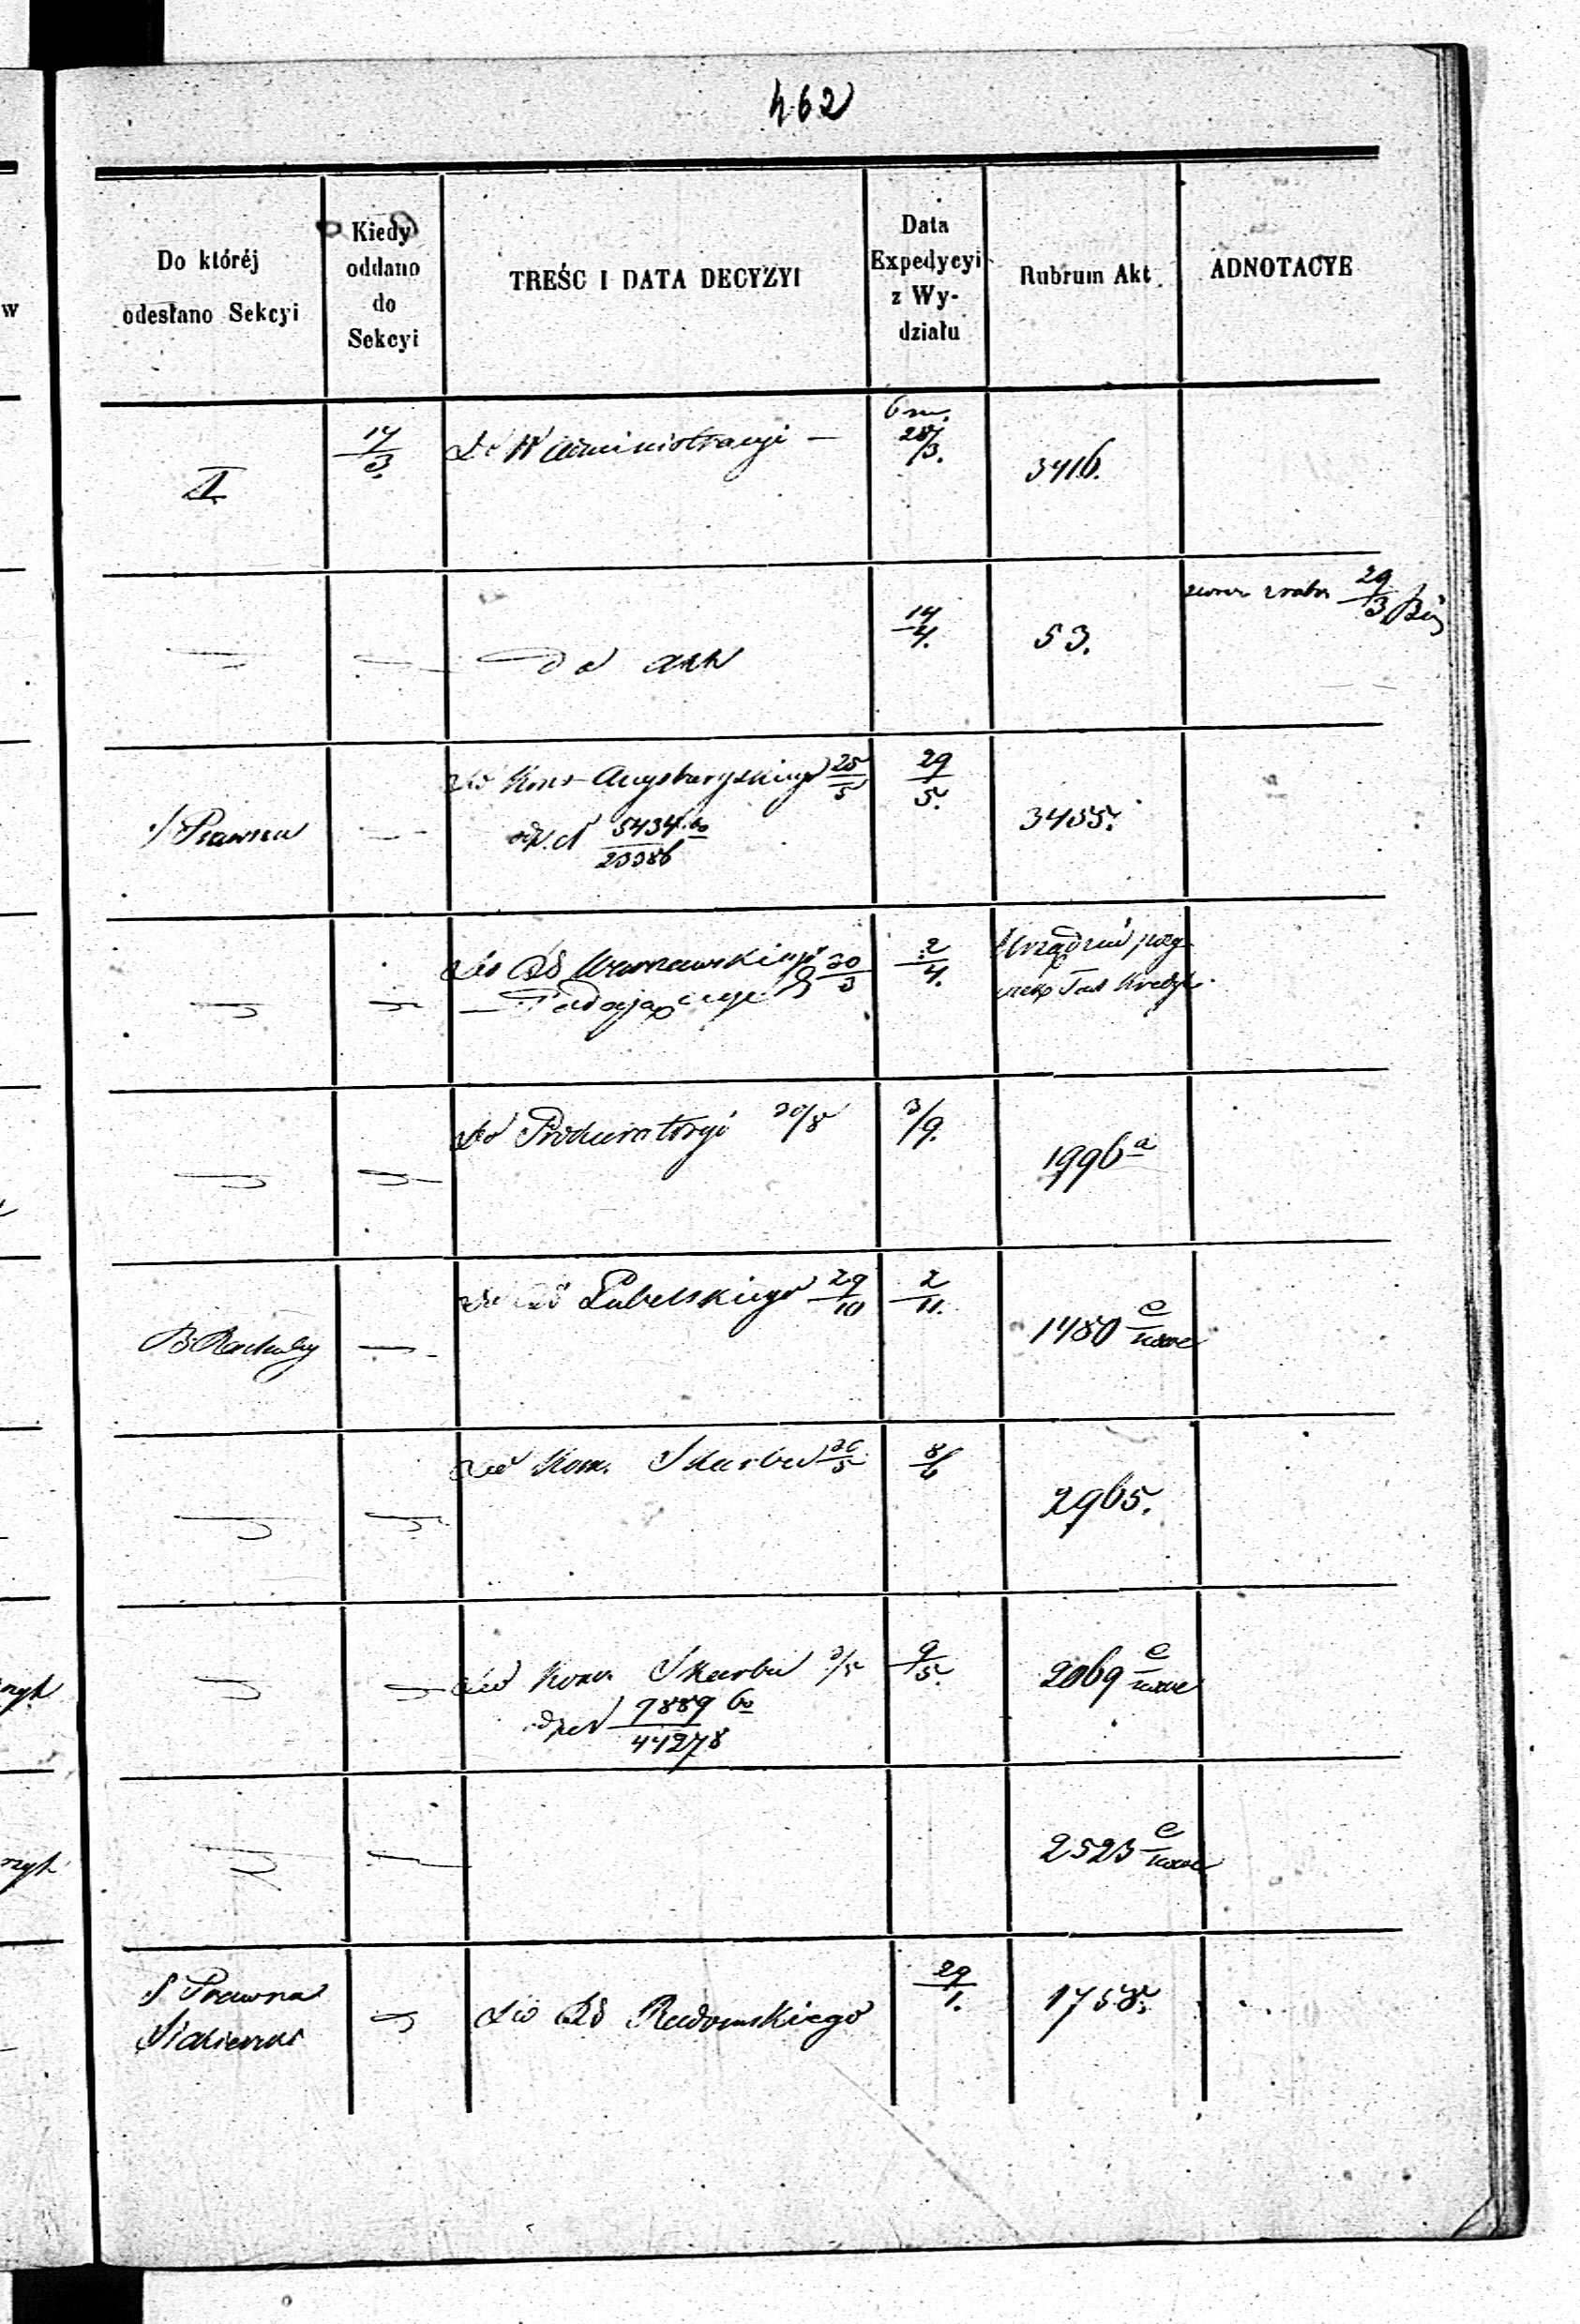 462
Do któréj
odesłano Sekcyi
Kiedy
oddano
do
Sekcyi
TREŚC I DATA DECYZYI
Data
Expedycyi
z Wy-
działu
Rubrum Akt
ADNOTACYE
II
14/3.
Do W Administracyi —
28/3.
3416.
Do akt
14/4.
53.
29/3
S Prawna
Do Kons Augsburgskiego 25/5
odp. N 5434
23386
29/5.
3455.
Do Rządu Warszawskiego 30/3
2/4.
Urządzeń
Tow Kredyt.
Do Prokuratoryi 30/8
3/9.
1996 a
B. Rachuby
Lubelskiego 29/10
2/11.
1480 e/nowe
Do Kom. Skarbu 26/5
8/6
2965.
Do Kom. Skarbu 3/5
9889
44278
9/5.
2069 e/nowe
2523 e/nowe
S Prawna
Do Rd Radomskiego
29/1.
1758.